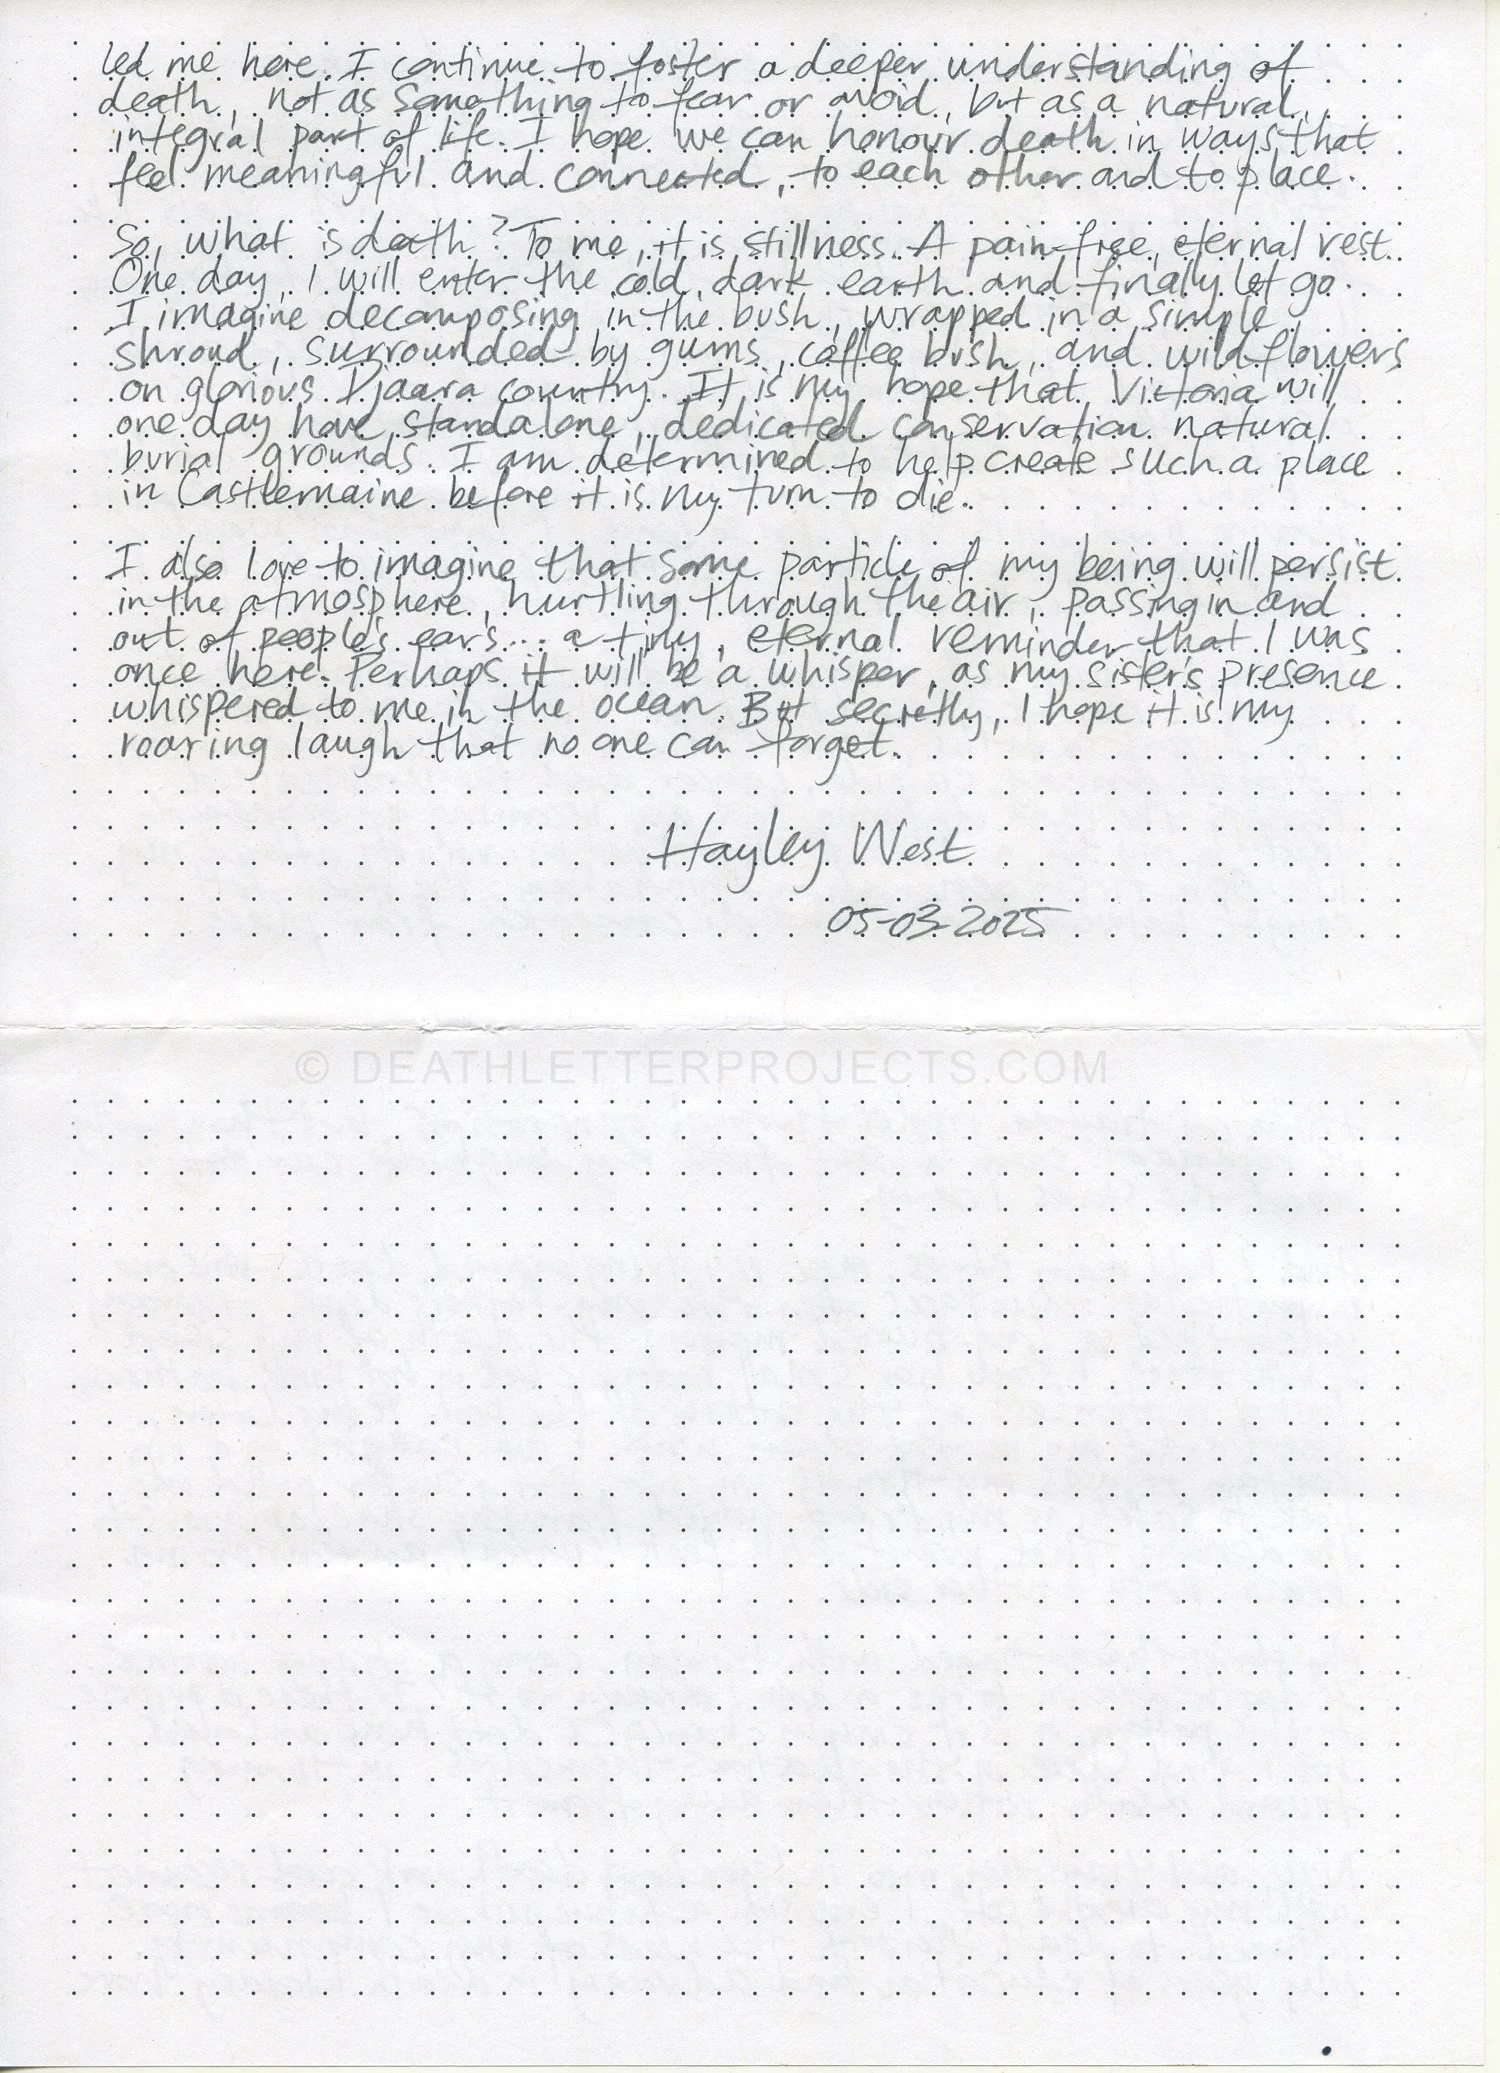 led me here. I continue to foster a deeper understanding of
death, not as something to fear or avoid, but as a natural,
integral part of life. I hope we can honour death in ways that
feel meaningful and connected, to each other and to place.
So, what is death? To me, it is stillness. A pain-free, eternal rest.
One day, I will enter the cold, dark earth and finally let go.
I imagine decomposing in the bush, wrapped in a simple
shroud, surrounded by gums, coffee bush, and wildflowers
on glorious Djaara country. It is my hope that Victoria will
one day have standalone, dedicated conservation natural
burial grounds. I am determined to help create such a place
in Castlemaine before it is my turn to die.
I also love to imagine that some particle of my being will persist
in the atmosphere, hurtling through the air, passing in and
out of people's ears... a tiny, eternal reminder that I was
once here. Perhaps it will be a whisper, as my sister's presence
whispered to me in the ocean. But secretly, I hope it is my
roaring laugh that no one can forget.
Hayley West
05-03-2025
© DEATHLETTERPROJECTS.COM